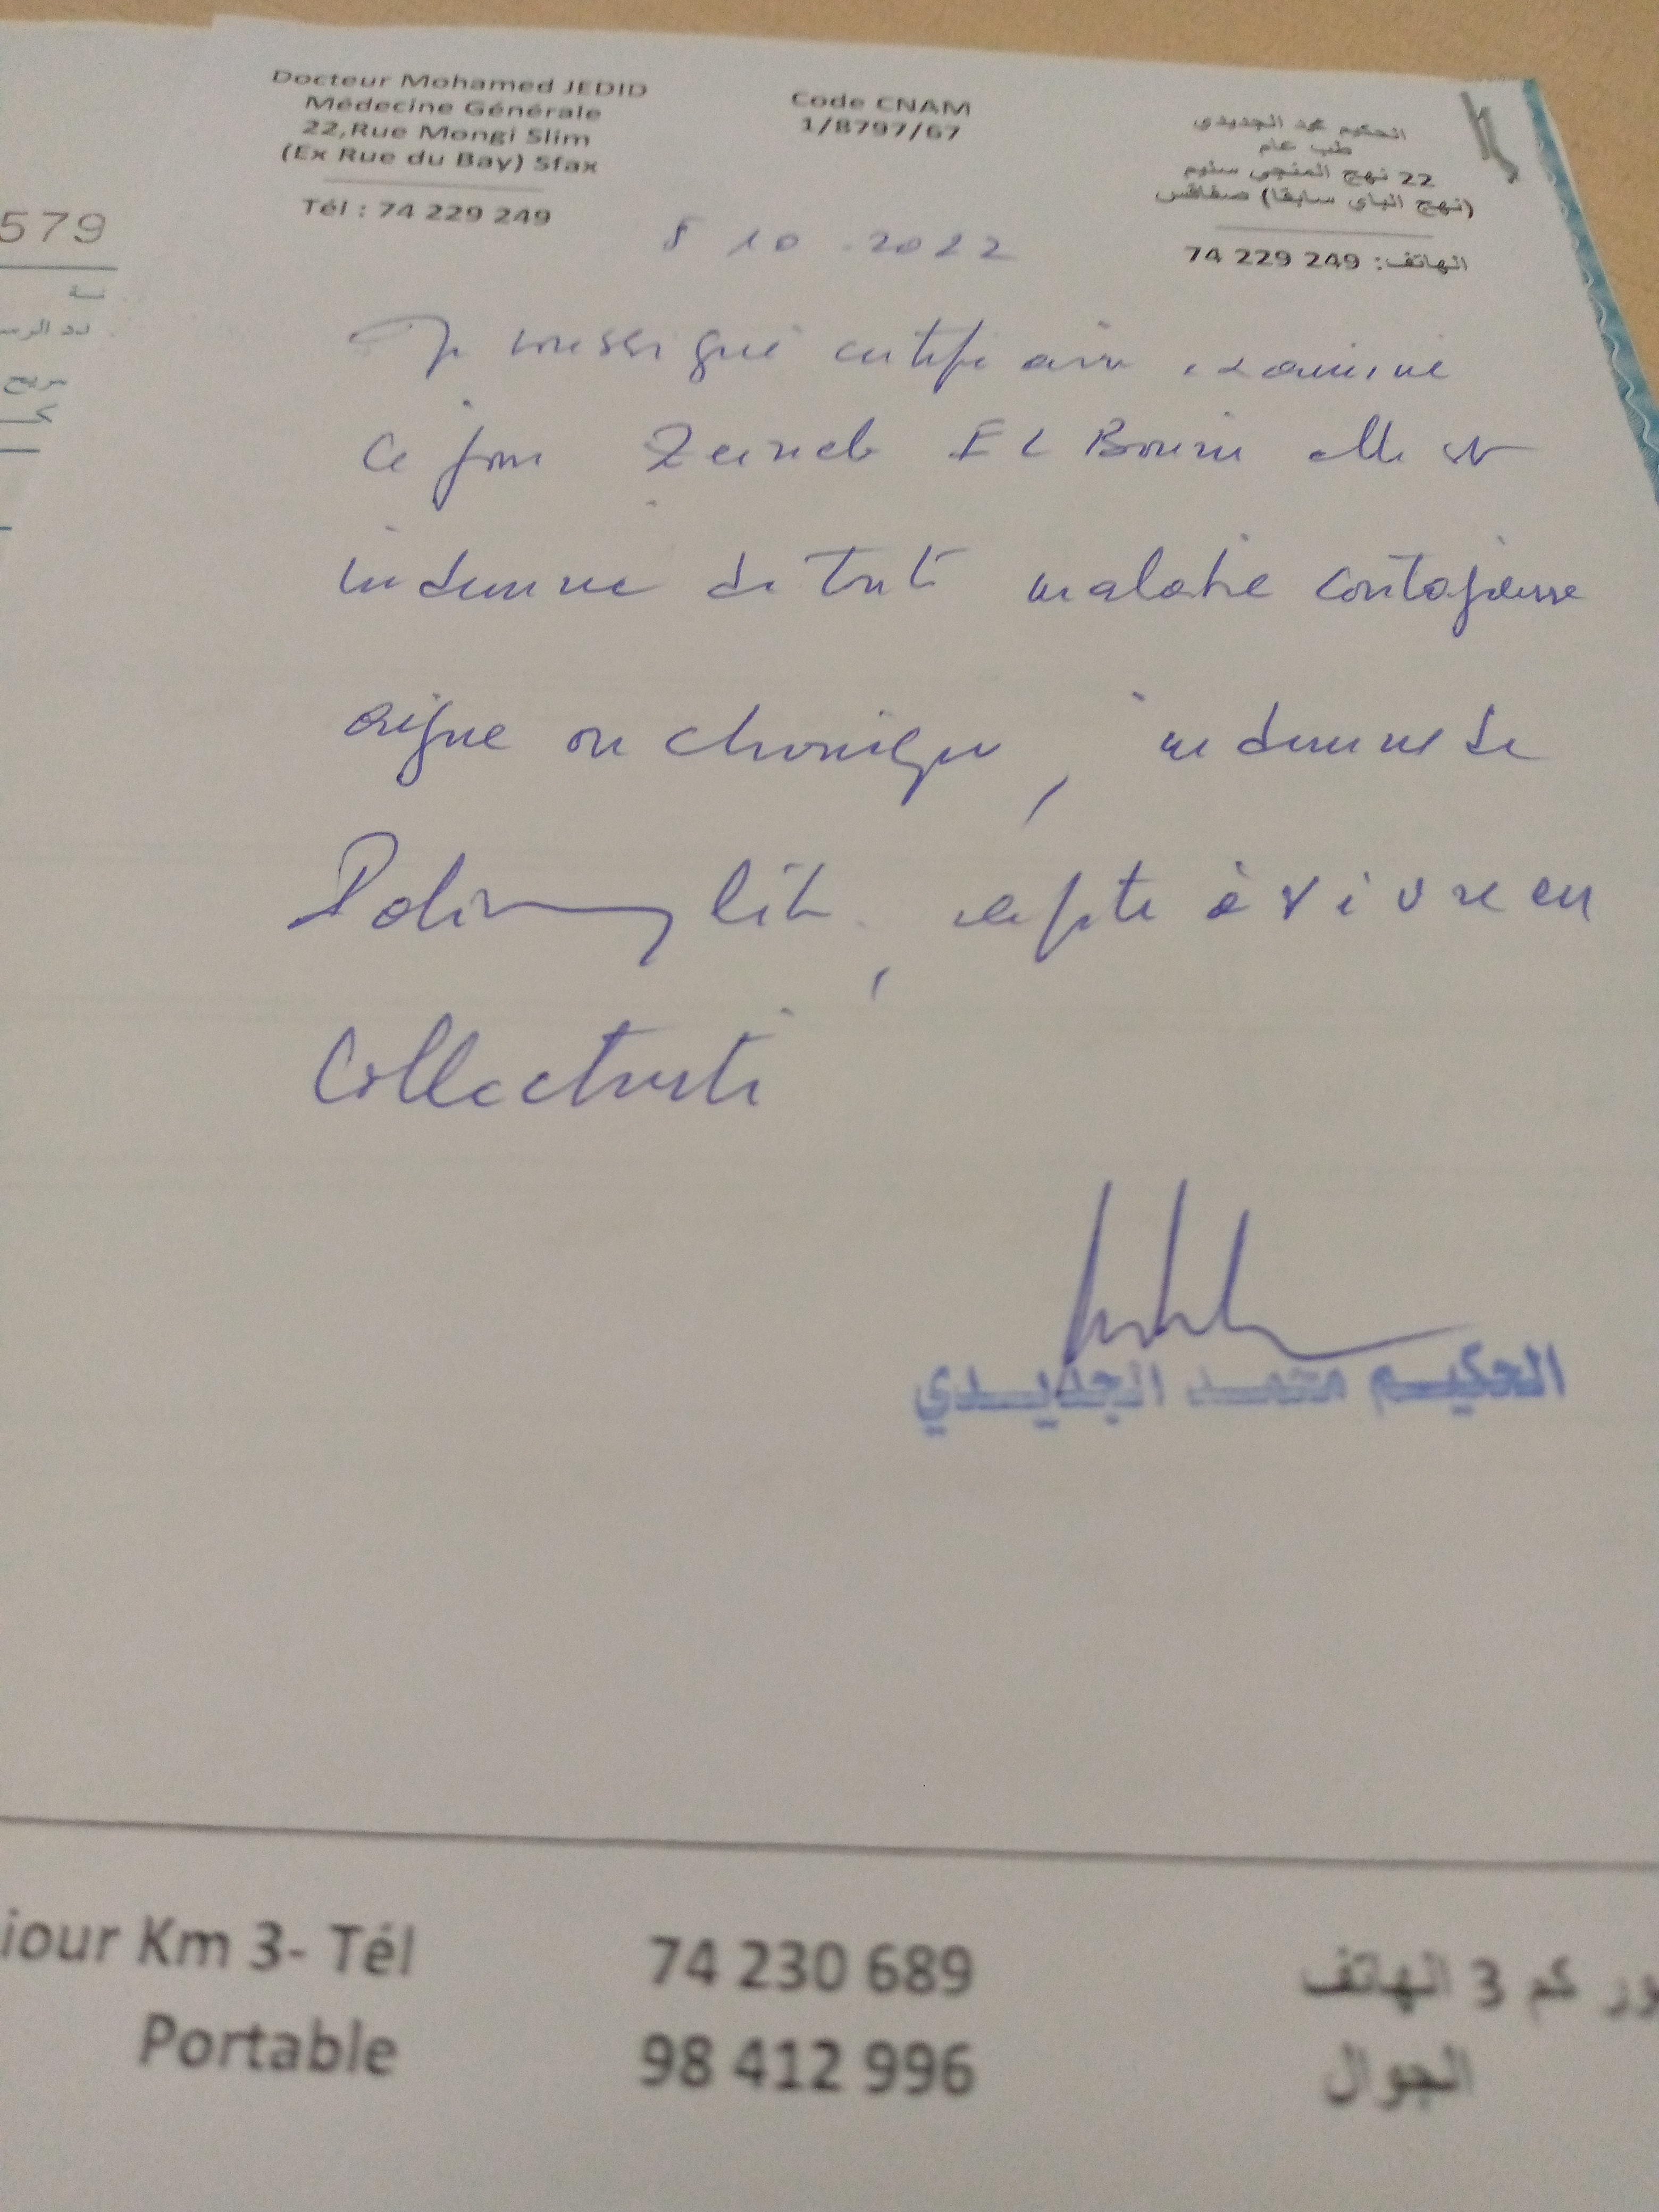 Docteur Mohamed JEDID
Médecine Générale
22,Rue Mongi Slim
(Ex Rue du Bay) Sfax
Tél : 74 229 249
Code CNAM
1/8797/67
الحكيم محمد الجديدي
طب عام
22 نهج المنجي سليم
(نهج الباي سابقا) صفاقس
الهاتف: 249 229 74
8 10 .2022
579
Je soussigné certifie avoir examiné
ce jour Zeineb EL elle est
indemne de toute maladie contagieuse
aigue ou chronique, indemne de
, apte à vivre en
Collectivité
الحكيم محمد الجديدي
iour Km 3- Tél 74 230 689 ور كم 3 الهاتف
Portable 98 412 996 الجوال